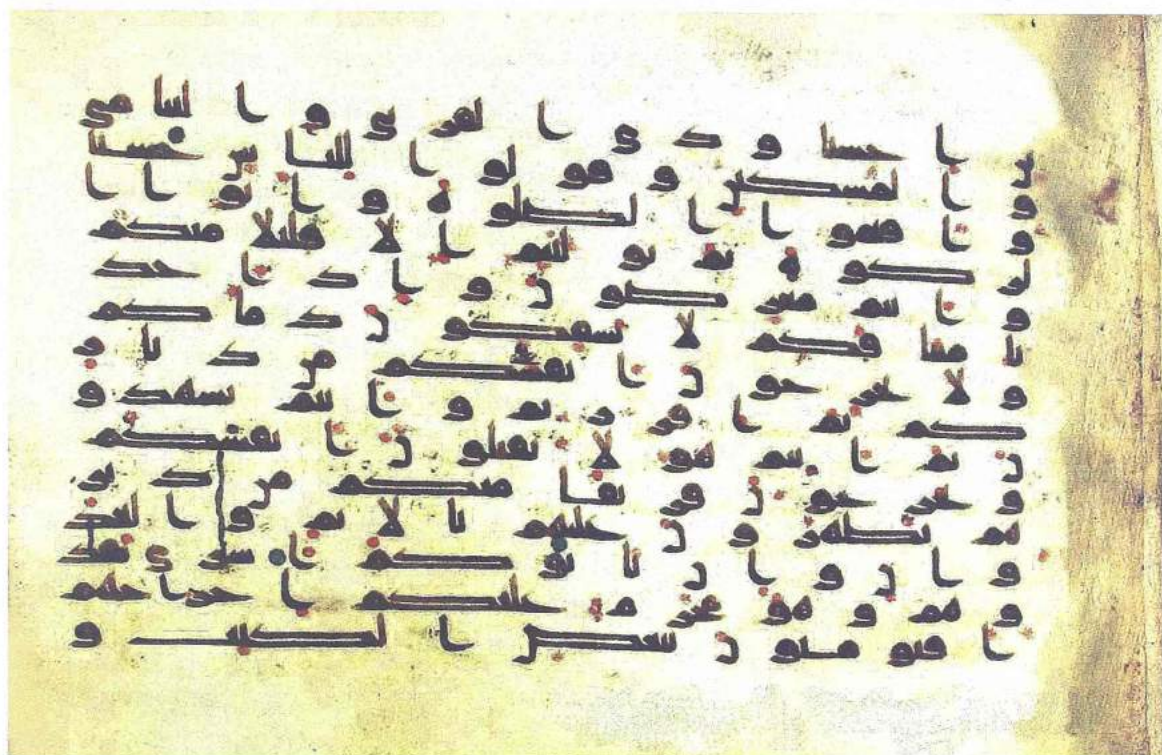 ين احسنا وذي القربى واليتامى
والمسكين وقولوا للناس حسنا
واقيموا الصلوة واتوا ا
لزكوة ثم توليتم الا قليلا منكم
وانتم معرضون واذ اخذ
نا ميثاقكم لا تسفكون دماكم
ولا تخرجون انفسكم من ديار
كم ثم اقررتم وانتم تشهدو
ن ثم انتم هولا تقتلون انفسكم
وتخرجون فريقا منكم من دير
هم تظهرون عليهم بالاثم والعد
ون وان ياتوكم اسرى تفد
وهم وهو محرم عليكم اخراجهم
افتومنون ببعض الكتب و